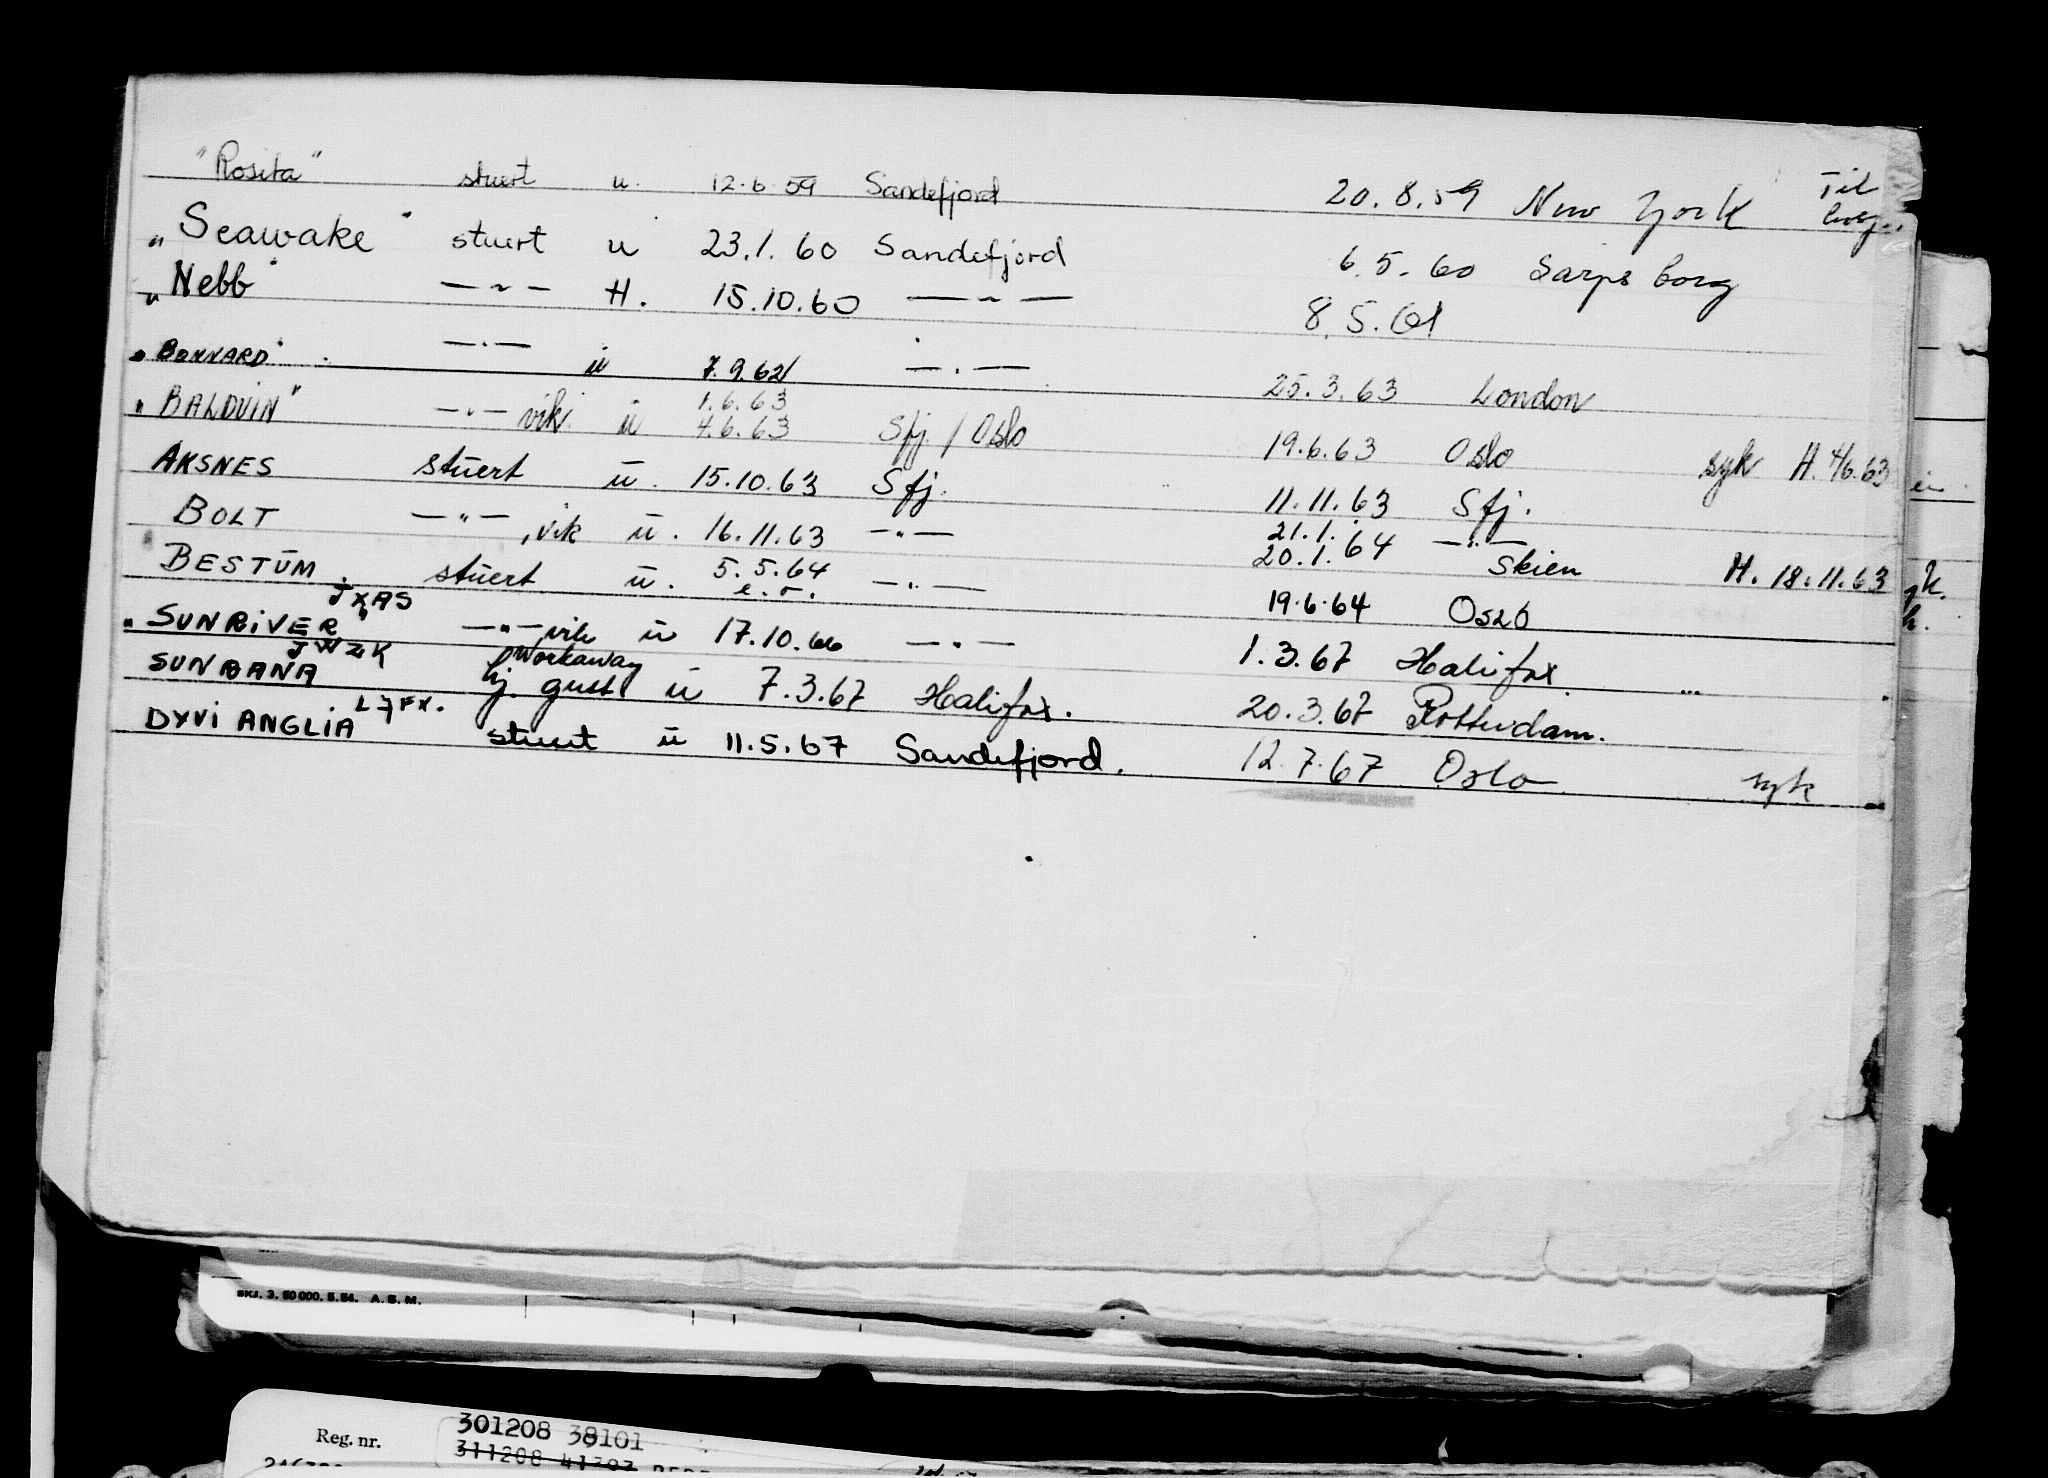 "Rosita" stuert u. 12.6.59 Sandefjord 20.8.59 New York Til
"Seawake" stuert u 23.1.60 Sandefjord 6.5.60 Sarpsborg
"Nebb" —"— H. 15.10.60 —"— 8.5.61
"BONNARD" —"— ū 7.9.62 —"— 25.3.63 London
"BALDUIN" —"— vik. ū 1.6.63
4.6.63 Sfj. / Oslo 19.6.63 Oslo syk H. 4/6.63
AKSNES stūert ū. 15.10.63 Sfj. 11.11.63 Sfj.
BOLT —"—, vik ū. 16.11.63 —"— 21.1.64 —"—
20.1. Skien H. 18.11.63
BESTŪM stūert ū. 5.5.64 —"— 19.6.64 OSLO
e.o.
JXAS
"SUNRIVER" —"— vik ū 17.10.66 —"— 1.3.67 Halifax
JWZK Workaway
SUNBANA hj. gutt ū 7.3.67 Halifax. 20.3.67 Rotterdam.
LJFX.
DYVI ANGLIA stuert ū 11.5.67 Sandefjord. 12.7.67 Oslo syk
SKJ. 3. 50 000. 5. 54. A. S. M.
Reg. nr. 301208 38101
311208 41303